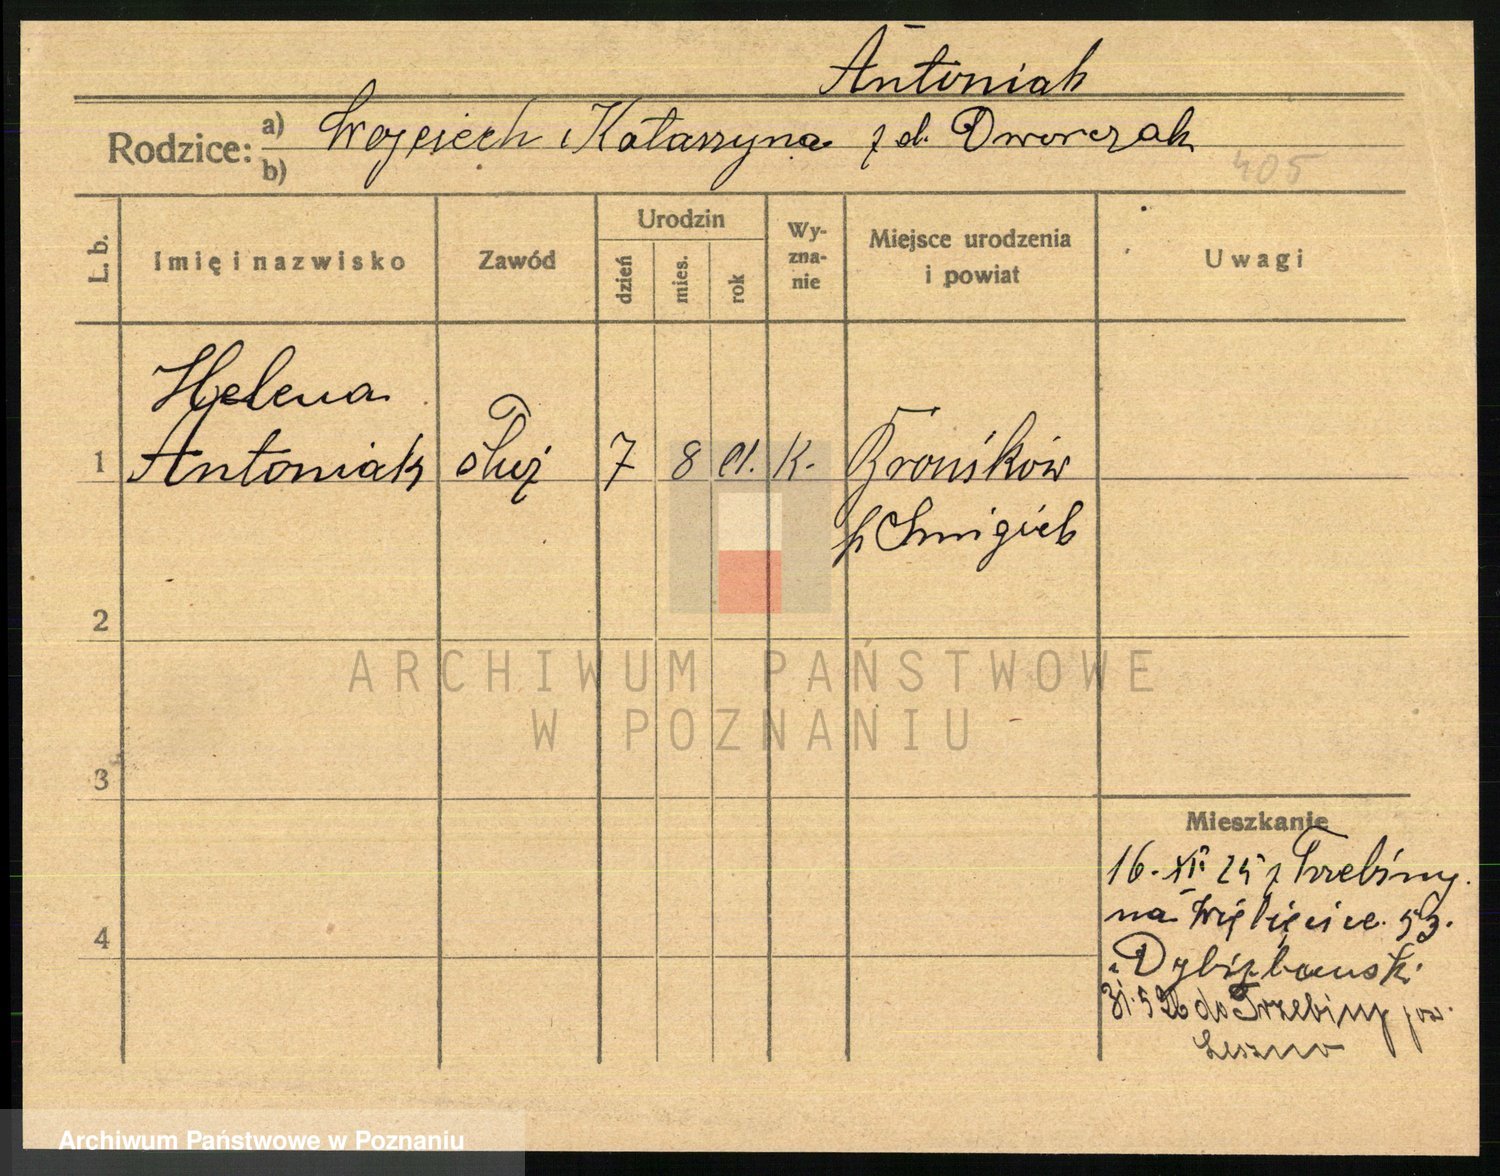 Antoniak
Rodzice: a) Wojciech i Katarzyna z d. Dworczak
b)
405
L. b. Imię i nazwisko Zawód Urodzin dzień mies. rok Wy-zna-nie Miejsce urodzenia i powiat Uwagi
Helena
1 Antoniak służ 7 8 01. K. Brońsków
p Śmigiel
2
ARCHIWUM PAŃSTWOWE
W POZNANIU
3
Mieszkanie
16. XII 25 z Trzebiny.
na 53.
4
31. 5 26 do Trzebiny pow.
Leszno
Archiwum Państwowe w Poznaniu